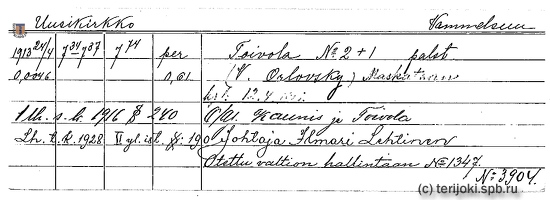 Uusikirkko Vammelsuu
1913 24/4 7 34-7 37 7 74 per Toivola № 2+1 palst
0,0046 0,01 (V. Orlovsky)
12.4
s. k. 1916 § 240 O/Y. Kaunis ja Toivola
Lh. t. k. 1928 II yl. ist. § 190 Johtaja Ilmari Lehtinen
Otettu valtion hallintaan № 1347.
№ 3904.
(c) terijoki.spb.ru